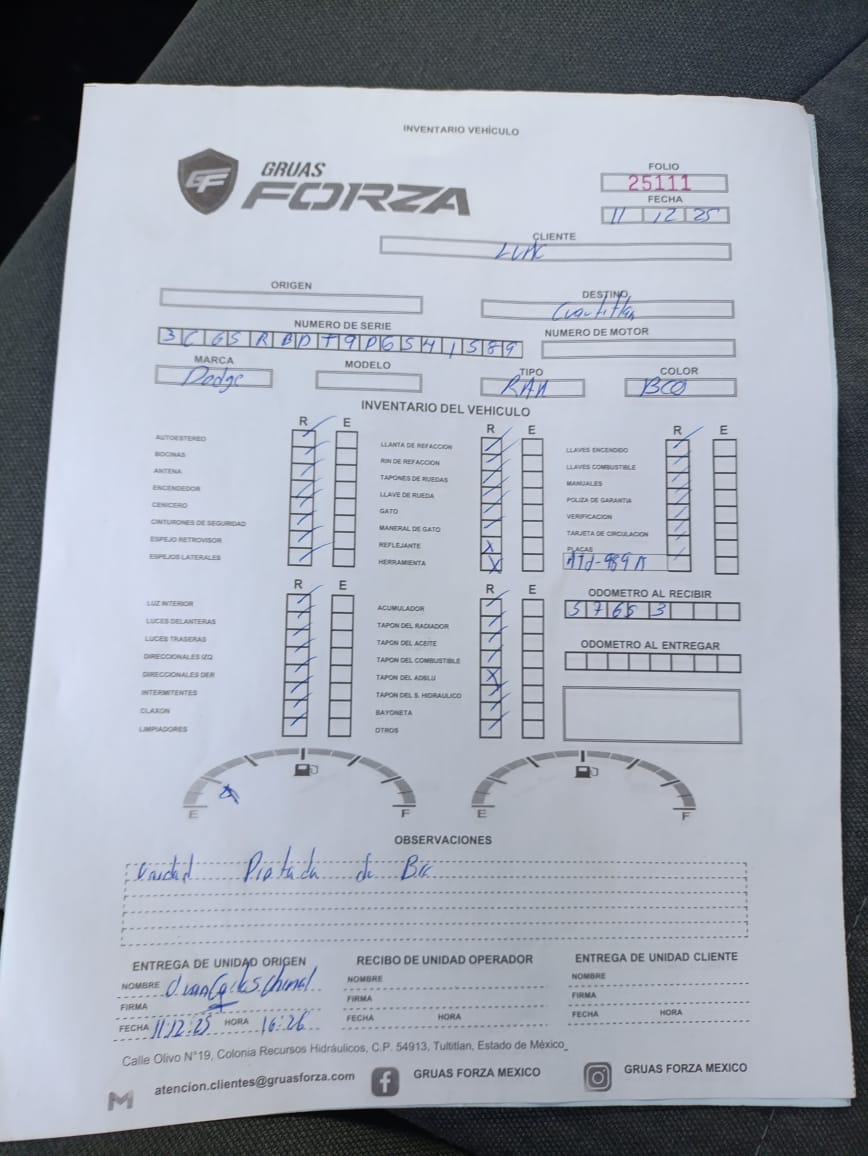 INVENTARIO VEHÍCULO
GF
GRUAS
FORZA
FOLIO
25111
FECHA
11 12 25
CLIENTE
ORIGEN
DESTINO
Cuautitlan
NUMERO DE SERIE
NUMERO DE MOTOR
MARCA
MODELO
TIPO
COLOR
Dodge
RAM
BCO
INVENTARIO DEL VEHICULO
R E
AUTOESTEREO
BOCINAS
ANTENA
ENCENDEDOR
CENICERO
CINTURONES DE SEGURIDAD
ESPEJO RETROVISOR
ESPEJOS LATERALES
R E
LLANTA DE REFACCION
RIN DE REFACCION
TAPONES DE RUEDAS
LLAVE DE RUEDA
GATO
MANERAL DE GATO
REFLEJANTE
HERRAMIENTA
R E
LLAVES ENCENDIDO
LLAVES COMBUSTIBLE
MANUALES
POLIZA DE GARANTIA
VERIFICACION
TARJETA DE CIRCULACION
PLACAS
R E
LUZ INTERIOR
LUCES DELANTERAS
LUCES TRASERAS
DIRECCIONALES IZQ
DIRECCIONALES DER
INTERMITENTES
CLAXON
LIMPIADORES
R E
ACUMULADOR
TAPON DEL RADIADOR
TAPON DEL ACEITE
TAPON DEL COMBUSTIBLE
TAPON DEL ADBLU
TAPON DEL S. HIDRAULICO
BAYONETA
OTROS
ODOMETRO AL RECIBIR
57653
ODOMETRO AL ENTREGAR
E F
E F
OBSERVACIONES
Unidad Pintada de
ENTREGA DE UNIDAD ORIGEN
NOMBRE
FIRMA
FECHA 11.12.25 HORA 16:26
RECIBO DE UNIDAD OPERADOR
NOMBRE
FIRMA
FECHA HORA
ENTREGA DE UNIDAD CLIENTE
NOMBRE
FIRMA
FECHA HORA
Calle Olivo N°19, Colonia Recursos Hidráulicos, C.P. 54913, Tultitlan, Estado de México_
atencion.clientes@gruasforza.com
GRUAS FORZA MEXICO
GRUAS FORZA MEXICO